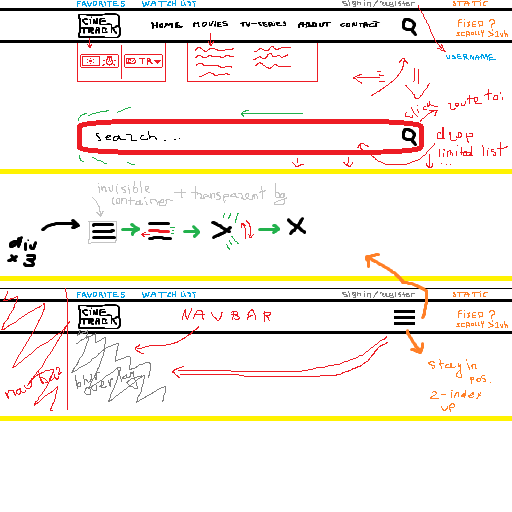 FAVORITES WATCH LIST Signin/register STATIC
CINE TRACK HOME MOVIES TV-SERIES ABOUT CONTACT FIXED?
USERNAME
TR
click route to:
search... drop
limited list
...
invisible
container + transparent bg
div
x 3
FAVORITES WATCH LIST Signin/register STATIC
CINE TRACK NAVBAR FIXED?
nav bar
stay in
pos.
z-index
up